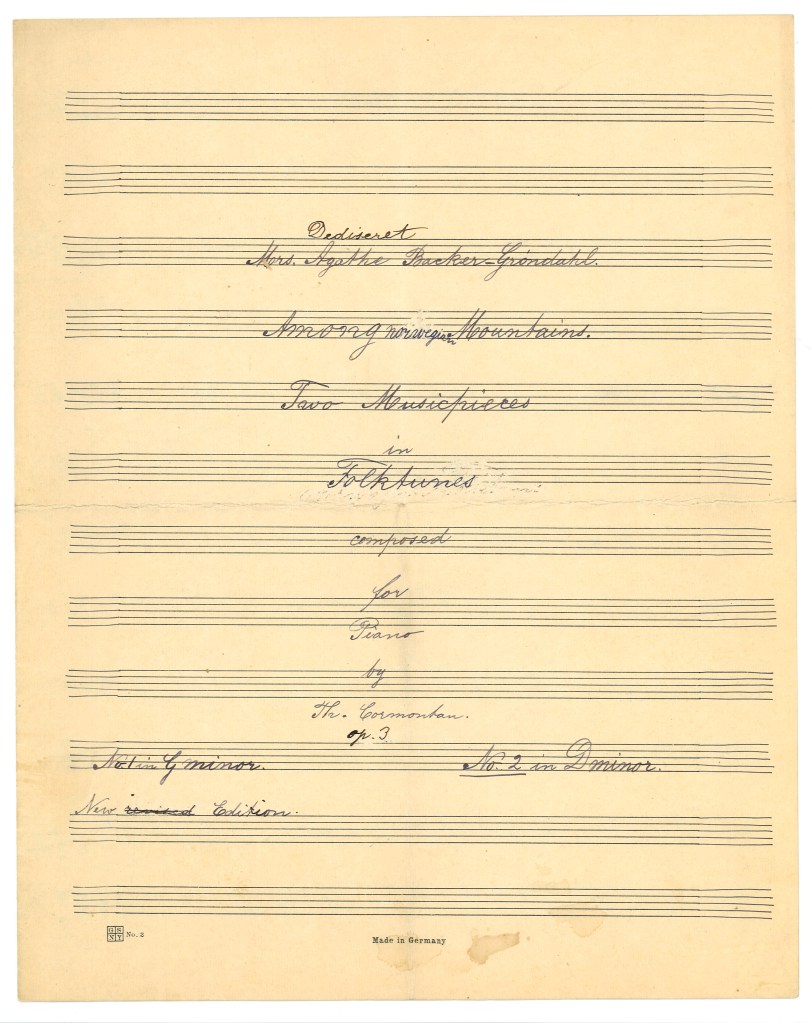 Dediscret
Mrs. Agathe Backer-Gröndahl.
Among norwegian Mountains.
Two Musicpieces
in
Folktunes
composed
for
Piano
by
Th. Cormontan.
op. 3
No. 1 in G minor. No. 2 in D minor.
New revised Edition.
GSNY No. 2
Made in Germany